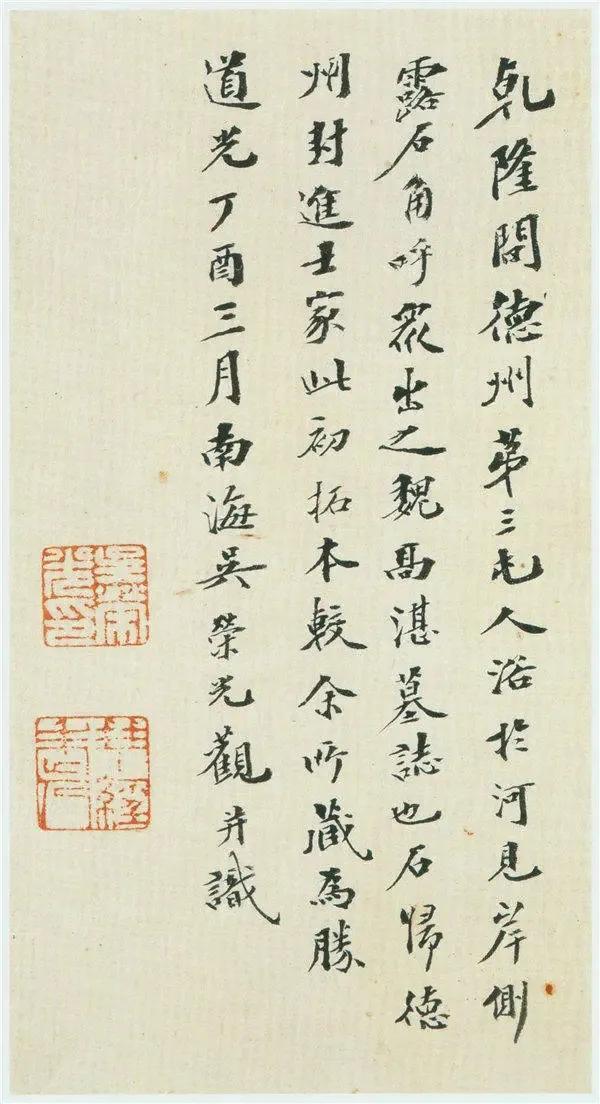 乹隆間德州第三屯人浴扵河見岸側
露石角呼衆出之魏高湛墓誌也石歸德
州封進士家此初拓本較余所藏為勝
道光丁酉三月南海吳榮光觀并識
吳榮光印